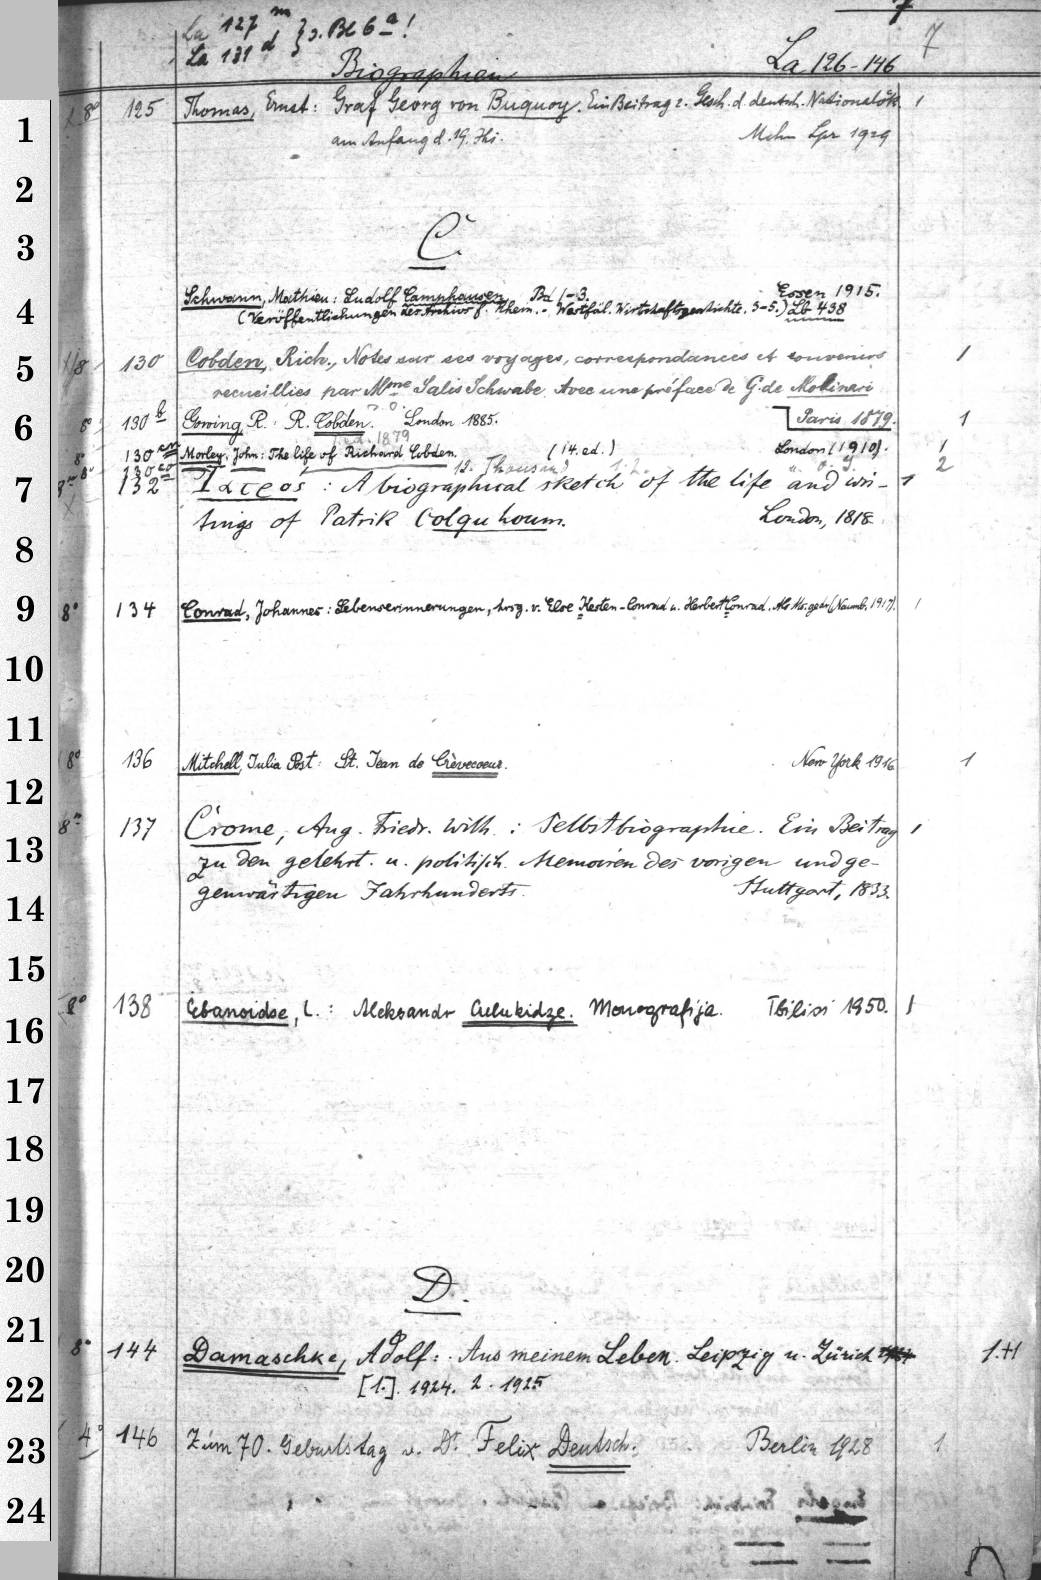 7 7
La 127 m } s. Bl 6 a!
La 131 d
Biographien La 126-146
8° 125 Thomas, Ernst: Graf Georg von Buquoy. Ein Beitrag z. Gesch. d. deutsch. Nationalök. 1
am Anfang d. 19. Jhs. Mchn Lpz 1929
C.
Schwann, Mathieu: Ludolf Camphausen Bd 1-3. Essen 1915.
(Veröffentlichungen des Archivs f. Rhein.- Westfäl. Wirtschaftsgeschichte. 3-5.) Lb 438
8 130 Cobden, Rich., Notes sur ses voyages, correspondances et souvenirs 1
recueillies par Mme Salis Schwabe. Avec une préface de G. de Molinari
8° 130 b Gowing, R. R. Cobden. London 1885. Paris 1879. 1
ed. 1879
8° 130 Morley, John: The life of Richard Cobden. (14. ed.) London (1910). 1
130 12. Thousand 2
8° 132 Ιατρος : A biographical sketch of the life and wri- 1
tings of Patrik Colquhoun. London, 1818.
8° 134 Conrad, Johannes: Lebenserinnerungen, hrsg. v. Else Kesten-Conrad u. Herbert Conrad. Als Ms. gedr. (Naumb. 1917). 1
8° 136 Mitchell, Julia Post: St. Jean de Crèvecoeur. New York 1916 1
8° 137 Crome, Aug. Friedr. Wilh. : Selbstbiographie. Ein Beitrag 1
zu den gelehrt. u. politisch. Memoiren des vorigen und ge-
genwärtigen Jahrhunderts. Stuttgart, 1833.
8° 138 Cebanoidse, L.: Aleksandr Culukidze. Monografija. Tbilisi 1950. 1
D.
8° 144 Damaschke, Adolf: Aus meinem Leben. Leipzig u. Zürich 1.+1
[1.] 1924. 2. 1925
4° 146 Zum 70. Geburtstag v. Dr. Felix Deutsch. Berlin 1928 1
1
2
3
4
5
6
7
8
9
10
11
12
13
14
15
16
17
18
19
20
21
22
23
24